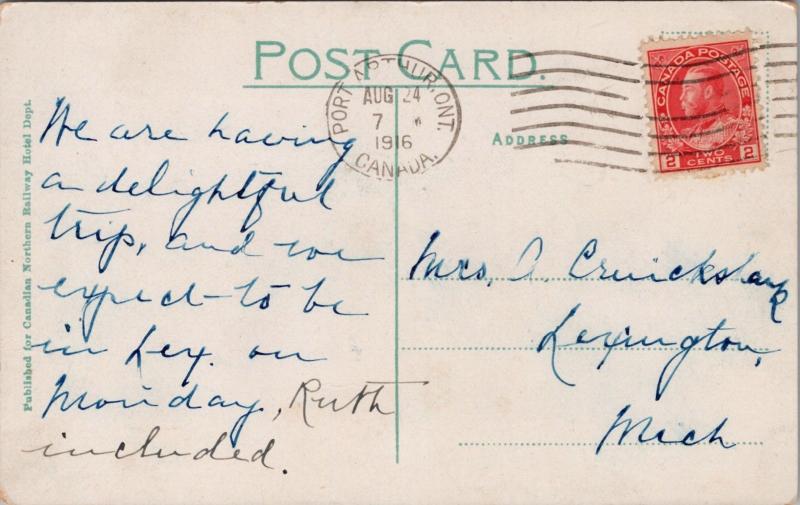 POST CARD.
Published for Canadian Northern Railway Hotel Dept.
PORT ARTHUR, ONT.
AUG 24
7
1916
CANADA.
CANADA POSTAGE
2 TWO 2
CENTS
ADDRESS
We are having
a delightful
trip, and we
expect to be
in Lex. on
Monday, Ruth
included.
Mrs. A. Cruickshank
Lexington,
Mich